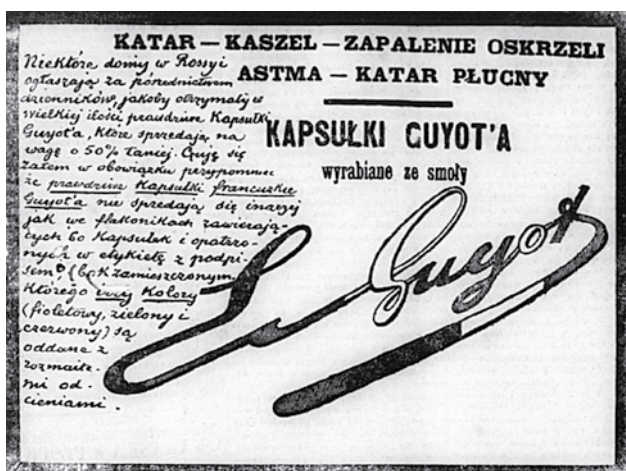 KATAR — KASZEL — ZAPALENIE OSKRZELI
ASTMA — KATAR PŁUCNY
KAPSUŁKI GUYOT'A
wyrabiane ze smoły
Niektóre domy w Rossyi
ogłaszają za pośrednictwem
dzienników, jakoby otrzymały w
wielkiej ilości prawdziwe Kapsułki
Guyot'a, które sprzedają na
wagę o 50% taniej. Czuję się
zatem w obowiązku przypomnieć
że prawdziwe Kapsułki francuzkie
Guyot'a nie sprzedają się inaczej
jak we flakonikach zawierają-
cych 60 Kapsułek i opatrzo-
nych w etykietę z podpi-
sem (bok zamieszczonym,
którego trzy Kolory
(fioletowy, zielony i
czerwony) są
oddane z
rozmaite-
mi od-
cieniami.
Guyot